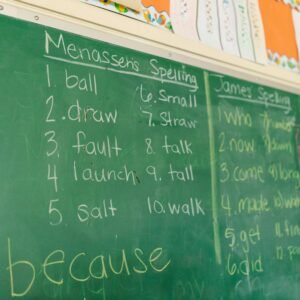 Menasseh's Spelling
1. ball 6. Small
2. draw 7. Straw
3. fault 8 talk
4 launch 9. tall
5. salt 10. walk
because
James' Spelling
1 who
2. now
3. come
4. made
5. get
6. did